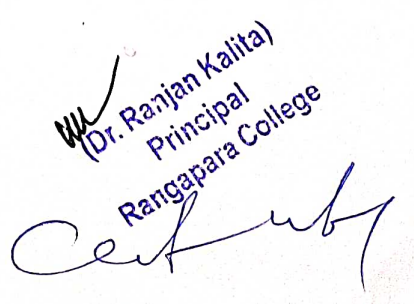 (Dr. Ranjan Kalita)
Principal
Rangapara College